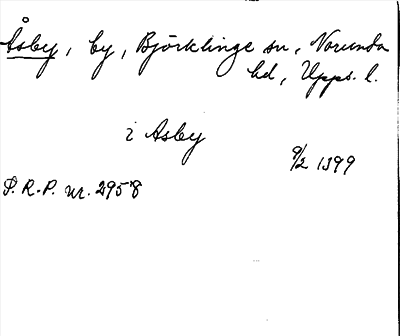 Åsby, by, Björklinge sn, Norunda
hd, Upps. l.
i Asby
9/2 1399
S.R.P. nr. 2958